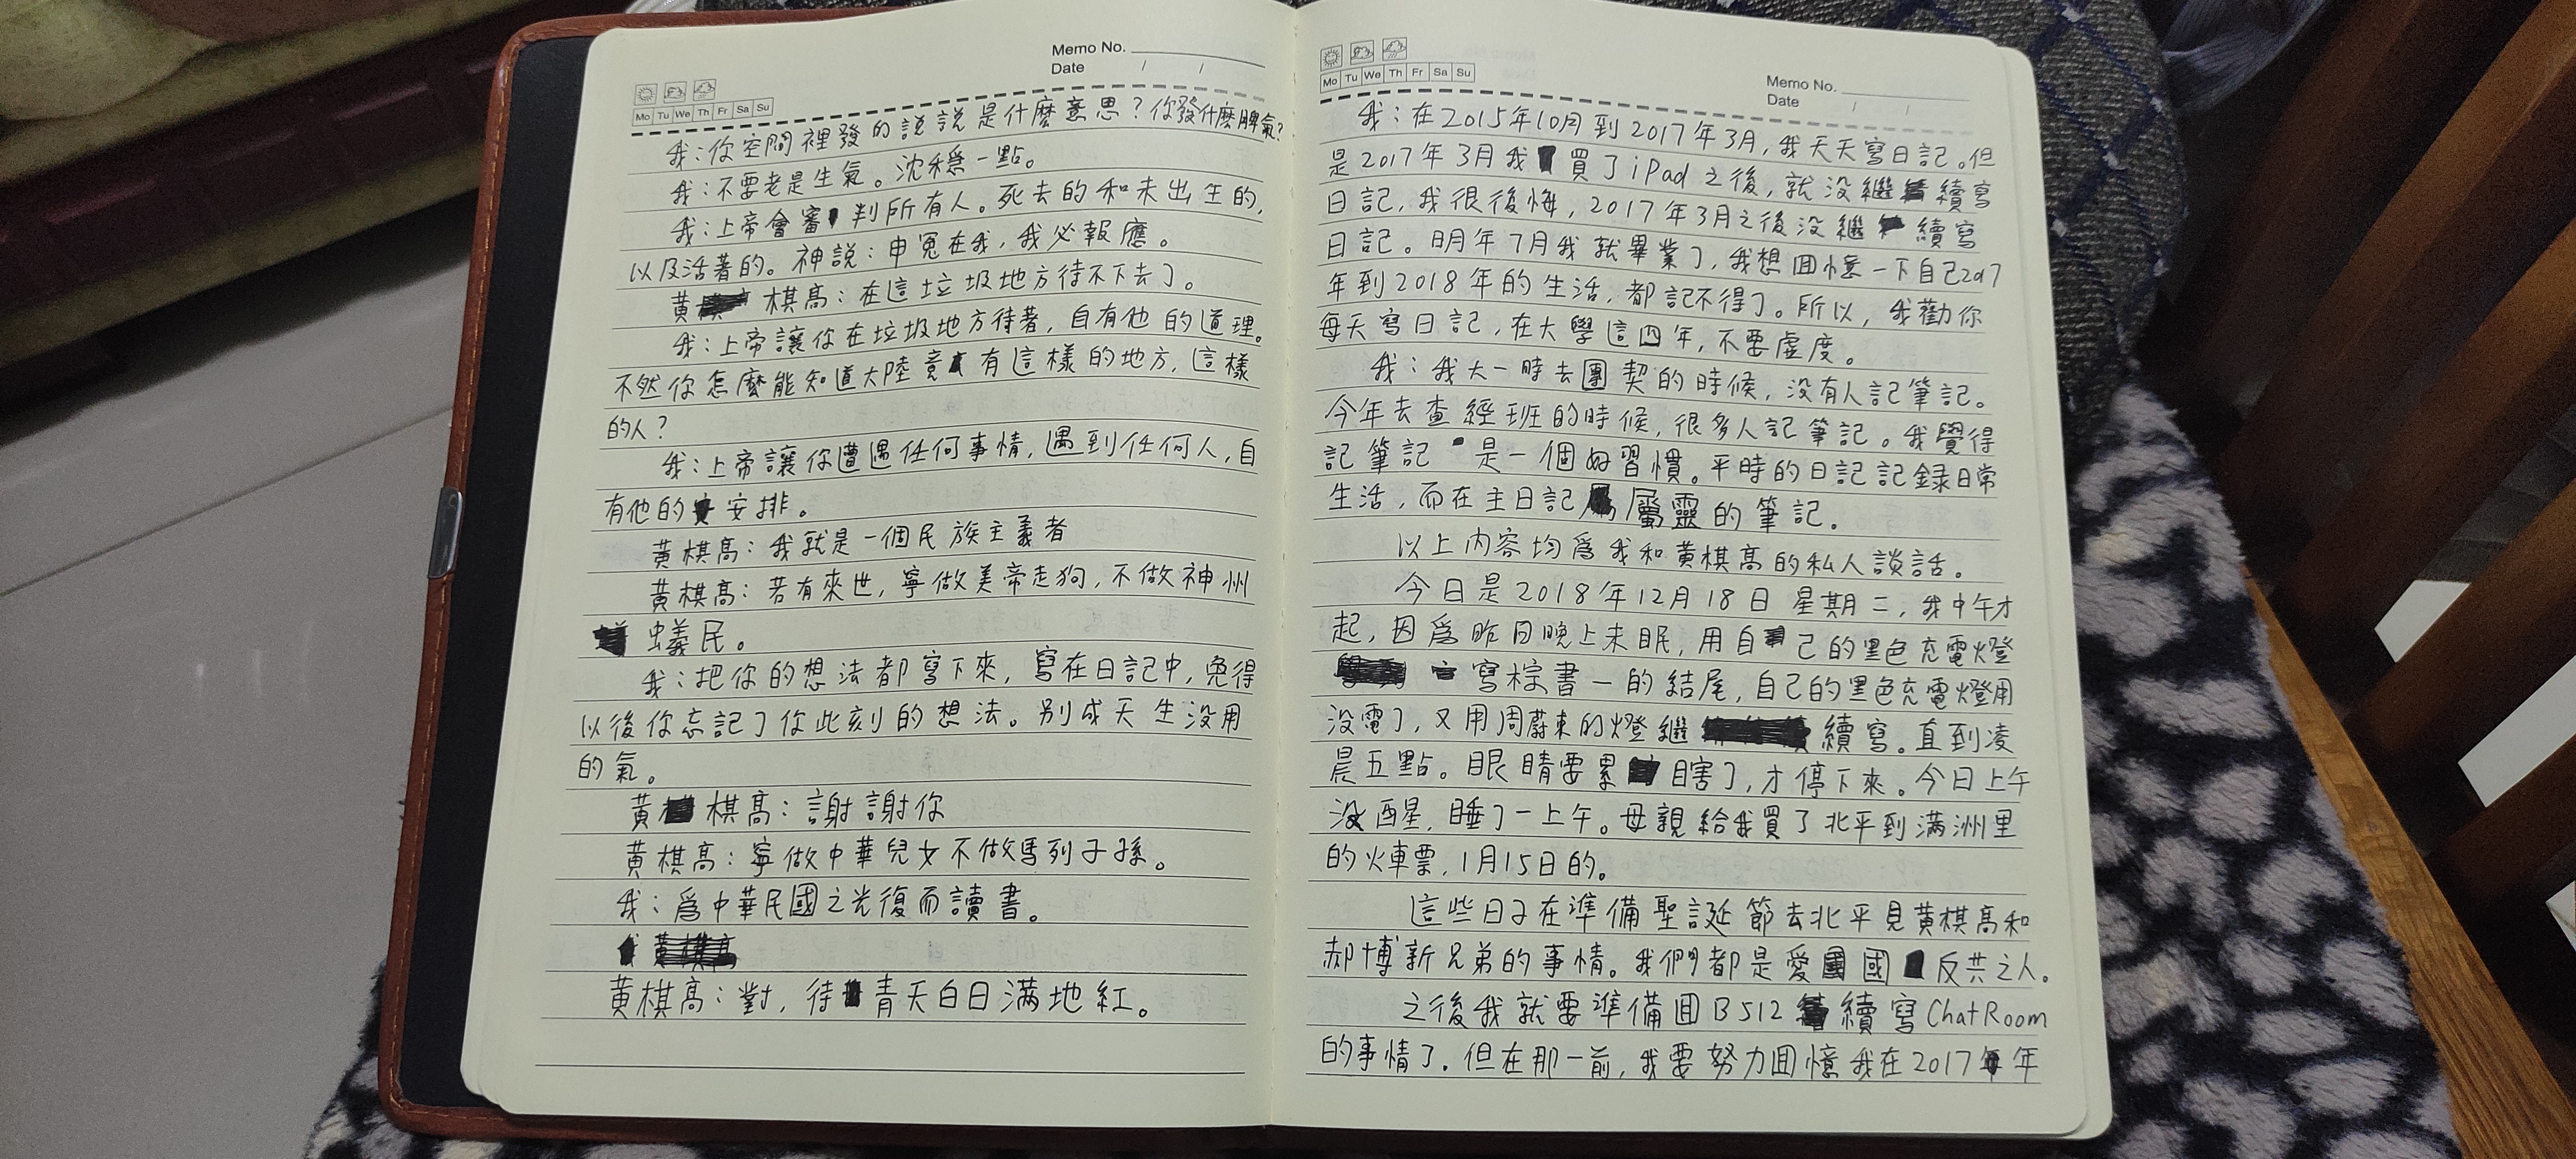 Memo No.
Date / /
Mo Tu We Th Fr Sa Su
我：你空間裡發的説説是什麼意思？你發什麼脾氣？
我：不要老是生氣。沈穩一點。
我：上帝會審判所有人。死去的和未出生的，
以及活著的。神説：申冤在我，我必報應。
黃棋高：在這垃圾地方待不下去了。
我：上帝讓你在垃圾地方待著，自有他的道理。
不然你怎麼能知道大陸竟有這樣的地方，這樣
的人？
我：上帝讓你遭遇任何事情，遇到任何人，自
有他的安排。
黃棋高：我就是一個民族主義者
黃棋高：若有來世，寧做美帝走狗，不做神州
蟻民。
我：把你的想法都寫下來，寫在日記中，免得
以後你忘記了你此刻的想法。别成天生没用
的氣。
黃棋高：謝謝你
黃棋高：寧做中華兒女不做馬列子孫。
我：爲中華民國之光復而讀書。
黃棋高：對，待青天白日滿地紅。
Mo Tu We Th Fr Sa Su
Memo No.
Date / /
我：在2015年10月到2017年3月，我天天寫日記。但
是2017年3月我買了iPad之後，就没繼續寫
日記，我很後悔，2017年3月之後没繼續寫
日記。明年7月我就畢業了，我想回憶一下自己2017
年到2018年的生活，都記不得了。所以，我勸你
每天寫日記，在大學這四年，不要虛度。
我：我大一時去團契的時候，没有人記筆記。
今年去查經班的時候，很多人記筆記。我覺得
記筆記是一個好習慣。平時的日記記録日常
生活，而在主日記屬靈的筆記。
以上内容均爲我和黃棋高的私人談話。
今日是2018年12月18日星期二，我中午才
起，因爲昨日晚上未眠，用自己的黑色充電燈
寫棕書一的結尾，自己的黑色充電燈用
没電了，又用周蔚東的燈繼續寫。直到凌
晨五點。眼睛要累瞎了，才停下來。今日上午
没醒，睡了一上午。母親給我買了北平到滿洲里
的火車票，1月15日的。
這些日子在準備聖誕節去北平見黃棋高和
郝博新兄弟的事情。我們都是愛國反共之人。
之後我就要準備回B512續寫ChatRoom
的事情了。但在那一前，我要努力回憶我在2017年